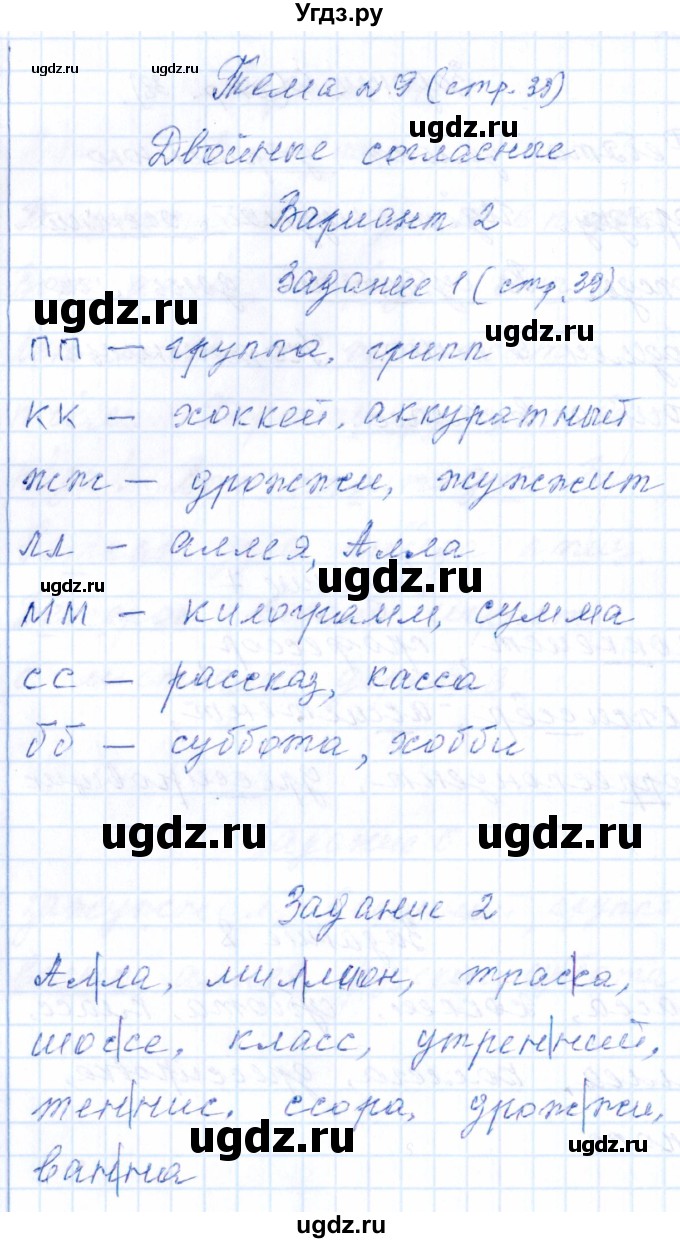 Угдз.ру
ugdz.ru ugdz.ru
Тема №9 (стр. 39)
ugdz.ru
Двойные согласные
Вариант 2
Задание 1 (стр. 39)
ugdz.ru ugdz.ru
ПП — группа, грипп
КК — хоккей, аккуратный
жж — дрожжи, жужжит
лл — аллея, Алла
ugdz.ru ugdz.ru
ММ — килограмм, сумма
СС — рассказ, касса
бб — суббота, хобби
ugdz.ru ugdz.ru
Задание 2
Ал|ла, мил|лион, трас|са,
шос|се, класс, утрен|ний,
тен|нис, ссора, дрож|жи,
ugdz.ru ugdz.ru
ван|на
ugdz.ru